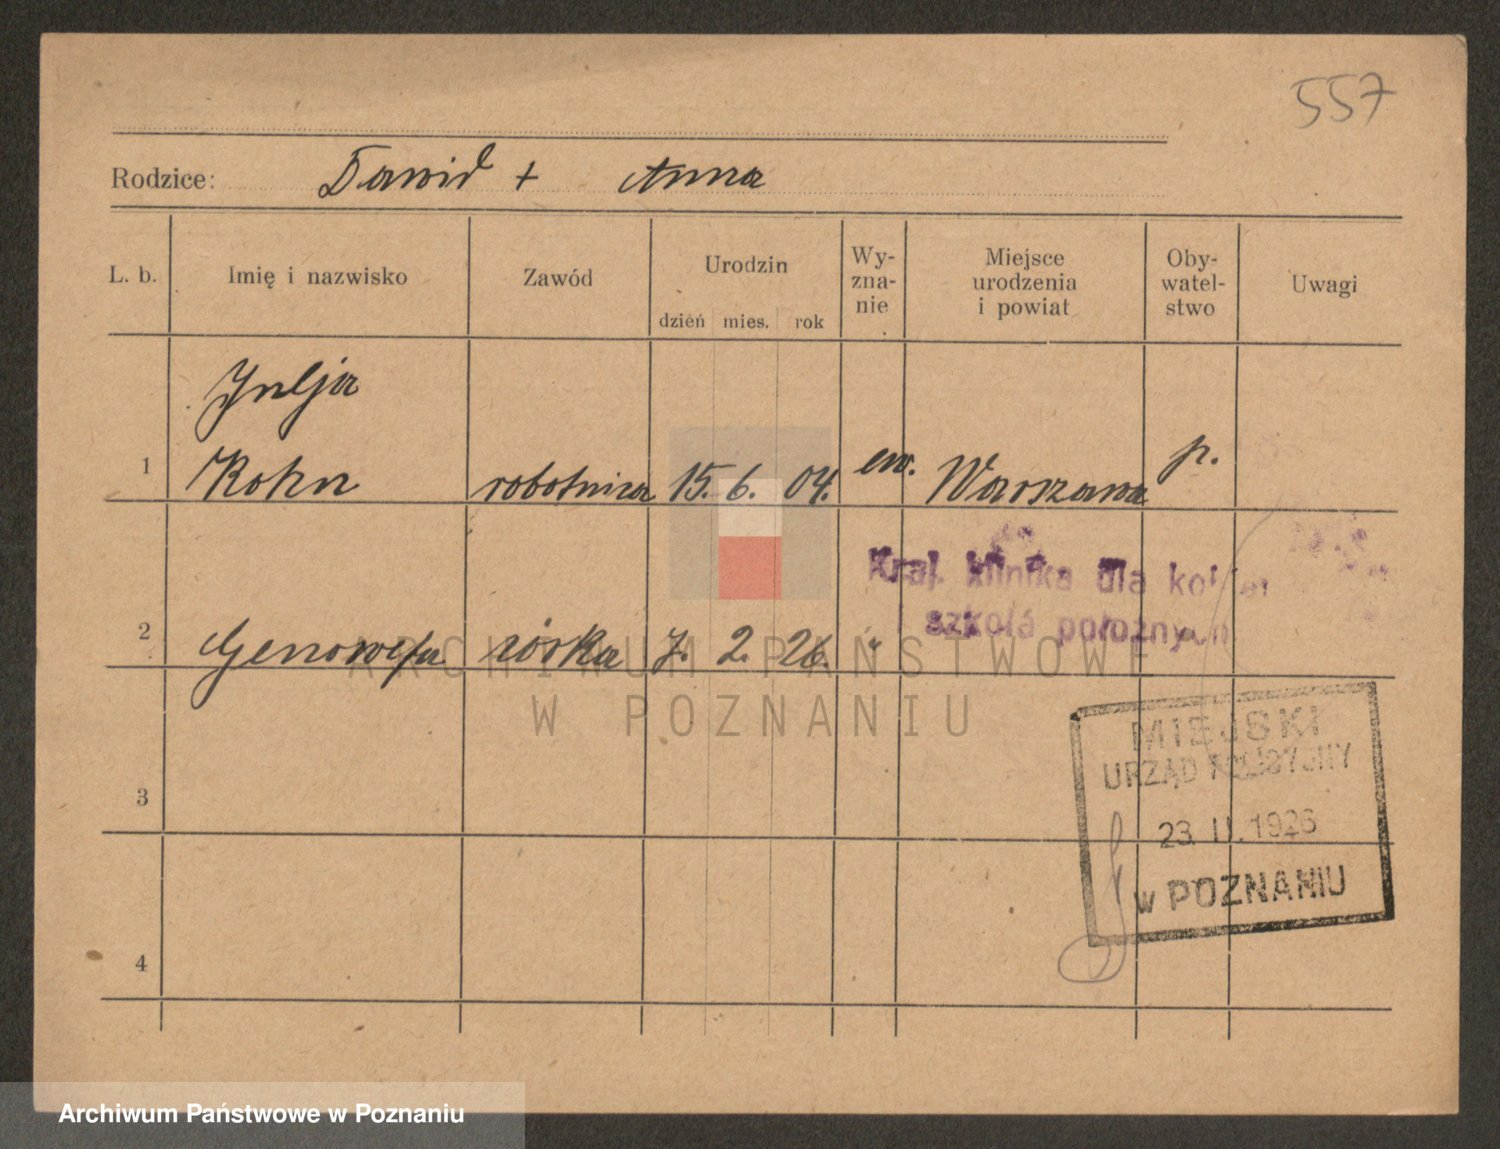 557
Rodzice: Dawid + Anna
L. b. Imię i nazwisko Zawód Urodzin dzień mies. rok Wy-zna-nie Miejsce urodzenia i powiat Oby-watel-stwo Uwagi
Julja
1 Kohn robotnica 15. 6. 04. ew. Warszawa p.
Kraj. klinika dla kobiet
szkoła położnych
2 Genowefa córka 7. 2. 26. "
ARCHIWUM PAŃSTWOWE
W POZNANIU
MIEJSKI
URZĄD POLICYJNY
3
23. II. 1926
w POZNANIU
4
Archiwum Państwowe w Poznaniu